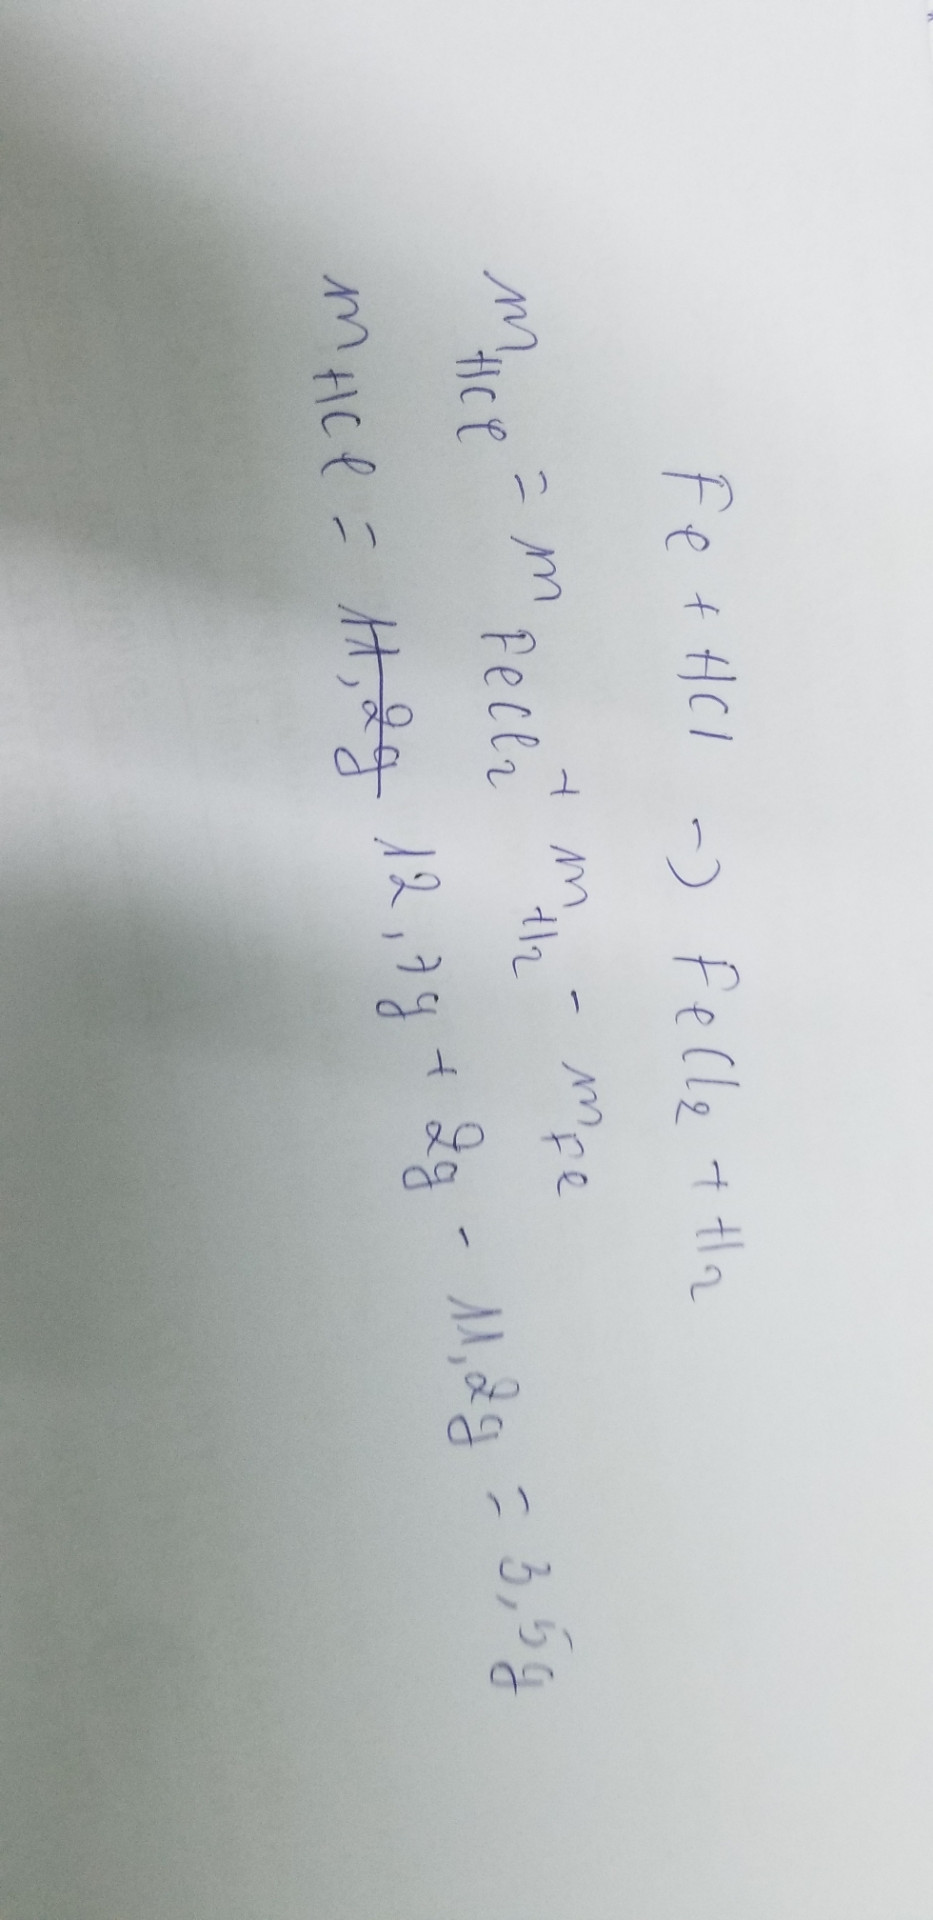 Fe + HCl -> FeCl2 + H2
mHCl = mFeCl2 + mH2 - mFe
mHCl = 11,2g 12,7g + 2g - 11,2g = 3,5g